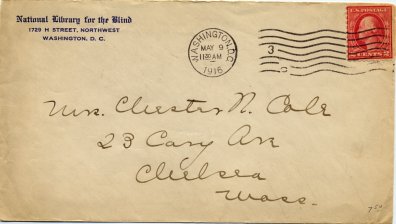 National Library for the Blind
1729 H STREET, NORTHWEST
WASHINGTON, D. C.
WASHINGTON, D.C.
MAY 9
11 30 AM
1916
3
C
U.S. POSTAGE
2 CENTS 2
Mrs. Chester N. Cole
23 Cary Ave
Chelsea
Mass.
7.50